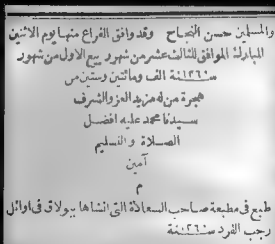 والمسلمين حسن النجاح وقد وافق الفراغ منها يوم الاثنين
المبارك الموافق للثالث عشر من شهور ربيع الاول من شهور
سنة ١٢٦٠ الف ومائتين وستين من
هجرة من له مزيد العز والشرف
سيدنا محمد عليه افضل
الصلاة والتسليم
آمين
م
طبع فى مطبعة صاحب السعادة التى انشاها ببولاق فى اوائل
رجب الفرد سنة ١٢٦٠